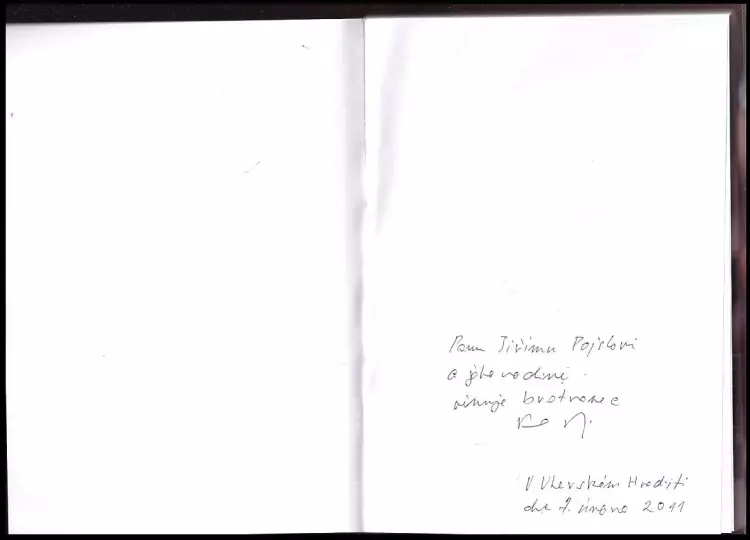 Panu Jiřímu Pojslovi
a jeho rodině
věnuje bratranec
V Uherském Hradišti
dne 7. února 2011